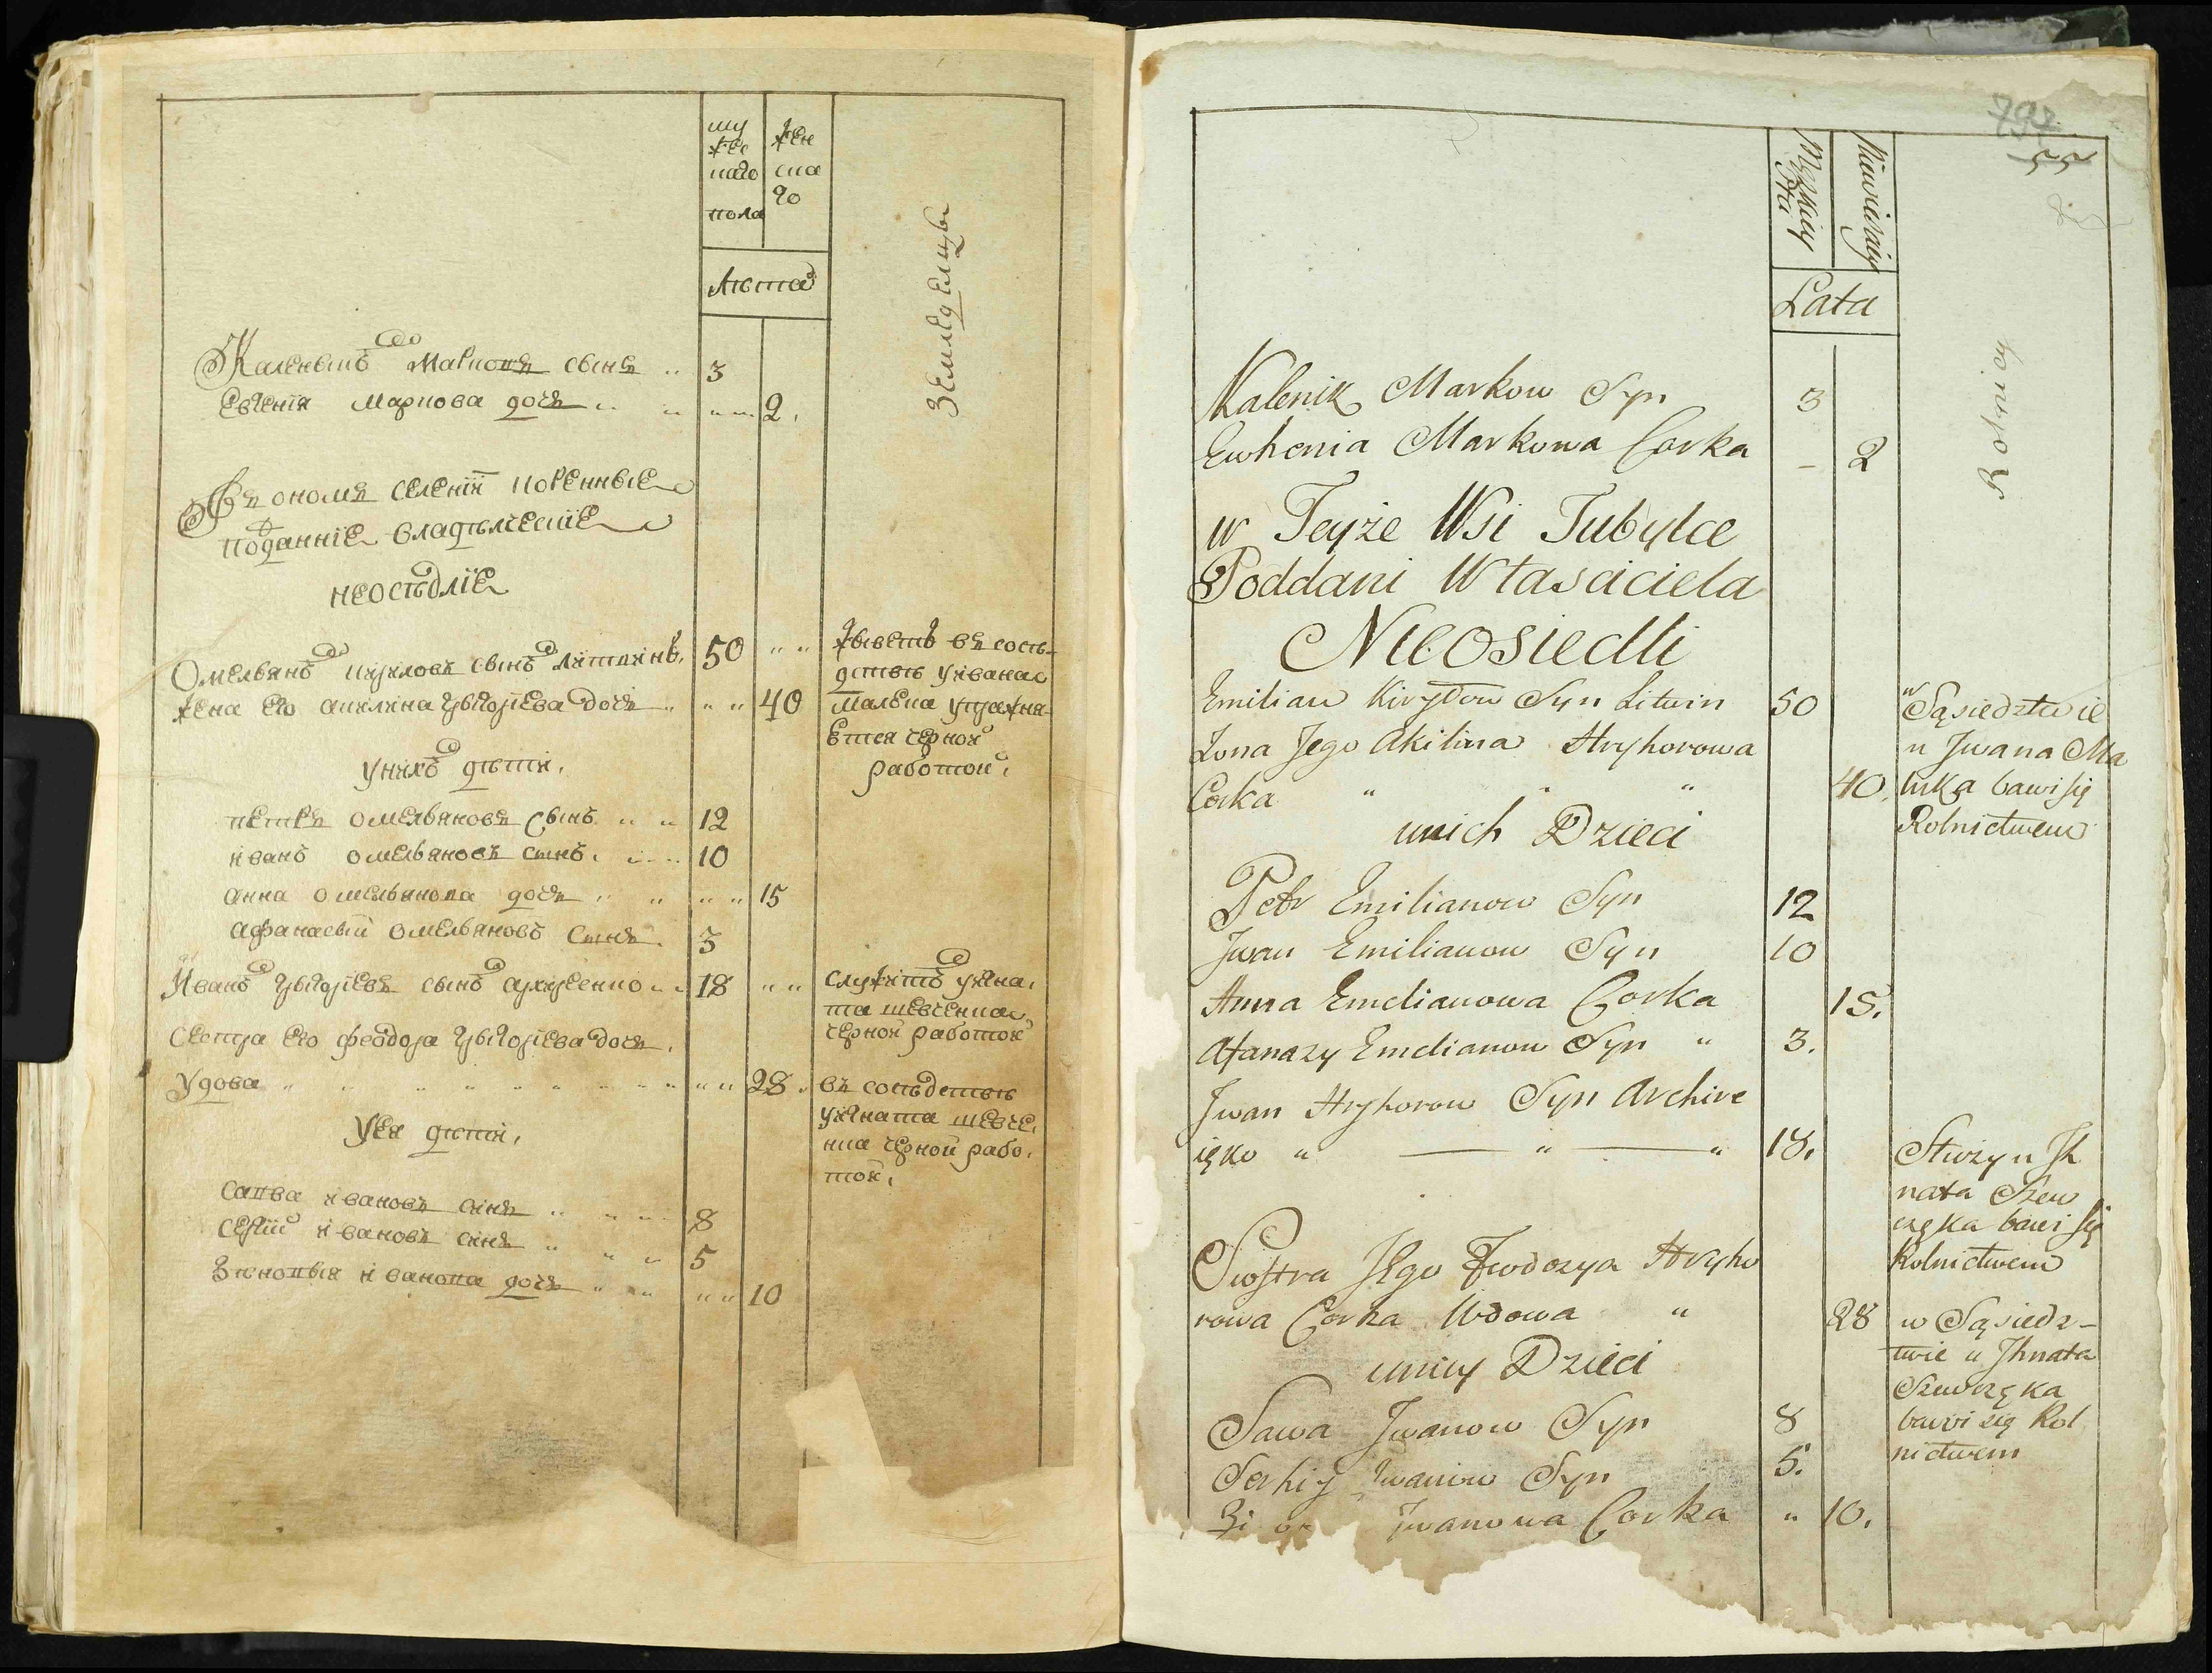 муж
ско
наго
пола
жен
ска
го
Лѣта
Земледелцы
Каленикъ Марковъ сынъ „ 3
Евгенія Маркова дочь „ „ „ „ 2.
Въ ономъ селеніи коренные
подданніе владѣлческіе
неоседліе
Омельянъ Кириловъ сынъ литвинъ. 50 „ „
жена его акилина григоріева дочь „ „ „ 40
живетъ въ сосѣ-
дствѣ у ивана
малека упражня-
ется черной
работой.
у нихъ дѣти.
петръ омельяновъ сынъ „ „ 12
иванъ омельяновъ сынъ. „ „ 10
анна омельянова дочь „ „ „ „ 15
афанасий омельяновъ сынъ. 3
Иванъ григоріевъ сынъ „ „ 18 „ „
служитъ у игна.
та шевченка
черной работой
сестра его феодора григоріева дочь.
удова „ „ „ „ „ „ „ „ „ „ 28 „
въ сосѣдствѣ
у игната шевче.
нка черной рабо.
той.
у ея дѣти.
савва ивановъ синъ „ „ „ 8
сергій ивановъ синъ „ „ „ 5
Зѣновья иванова дочь „ „ „ „ „ 10
797
55
Męzkiey
Płci
Niewieściey
Lata
Rolnicy
Kalenik Markow Syn 3
Ewhenia Markowa Corka – 2
w Teyże Wsi Tubylce
Poddani Własciciela
Nieosiedli
Emilian Kiryłow Syn Litwin 50
Zona Jego Akilina Hryhorowa
Corka „ „ „ 40.
w Sąsiedztwie
u Jwana Ma
luka bawi się
Rolnictwem
u nich Dzieci
Petr Emilianow Syn 12
Jwan Emilianow Syn 10
Anna Emelianowa Corka 15.
Afanazy Emelianow Syn „ 3.
Jwan Hryhorow Syn Archire
ięko „ — „ — „ 18.
Służy u Jh
nata Szew
częka bawi się
Rolnictwem
Siostra Jego Fwodozya Hryho
rowa Corka Wdowa „ 28
w Sąsiedz-
twie u Jhnata
Szewczęka
bawi się Rol
nictwem
u niey Dzieci
Sawa Jwanow Syn 8
Serhiy Jwanow Syn 5.
Jwanowa Corka „ 10.